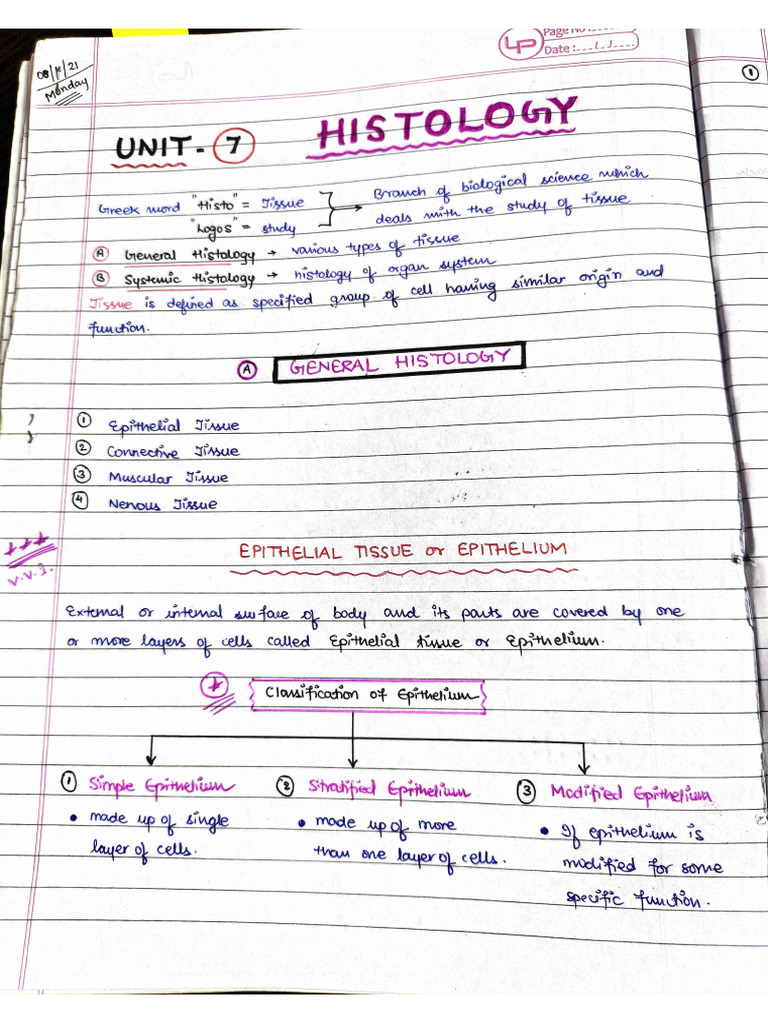 LP
Page No
Date:
1
08/11/21
Monday
UNIT - 7 HISTOLOGY
Greek word "Histo" = Tissue
"Logos" = study
Branch of biological science which
deals with the study of tissue
A General Histology → various types of tissue
B Systemic Histology → histology of organ system
Tissue is defined as specified group of cell having similar origin and
function.
A GENERAL HISTOLOGY
1 Epithelial Tissue
2 Connective Tissue
3 Muscular Tissue
4 Nervous Tissue
V.V.I.
EPITHELIAL TISSUE or EPITHELIUM
External or internal surface of body and its parts are covered by one
or more layers of cells called Epithelial tissue or Epithelium.
Classification of Epithelium
1 Simple Epithelium 2 Stratified Epithelium 3 Modified Epithelium
• made up of single
layer of cells.
• made up of more
than one layer of cells.
• If epithelium is
modified for some
specific function.